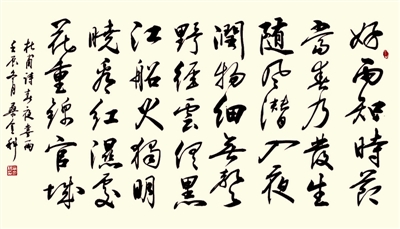 好雨知時節
當春乃發生
隨風潛入夜
潤物細無聲
野徑雲俱黑
江船火獨明
曉看紅濕處
花重錦官城
杜甫詩春夜喜雨
壬辰月